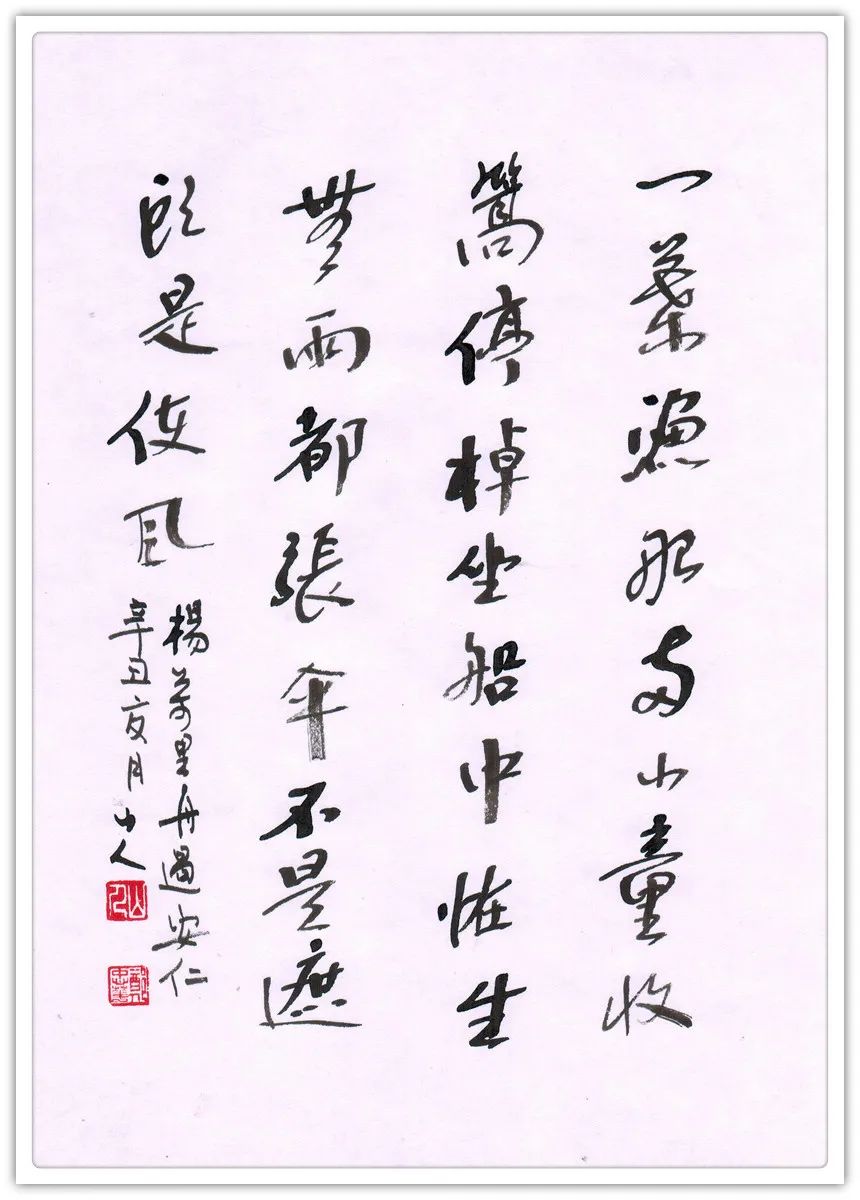 一葉漁船两小童收
篙停棹坐船中恠生
無雨都張傘不是遮
頭是使風
楊萬里舟過安仁
辛丑亥月山人
山人